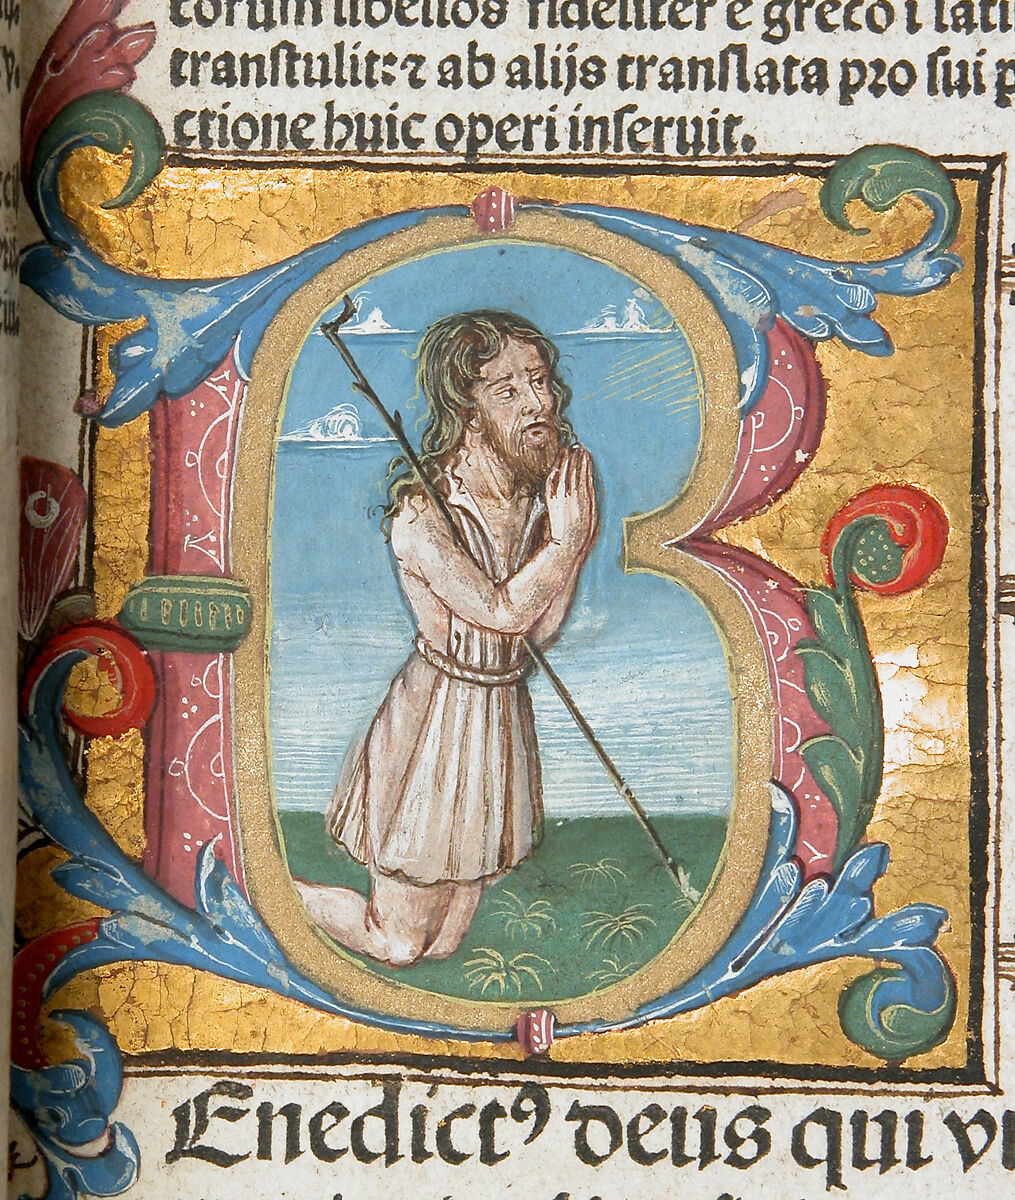 torum libellos fideliter e greco i lati
tranſtulit: ⁊ ab alijs tranſlata pro ſui p
ctione huic operi inſeruit.
B
Enedictꝰ deus qui vi